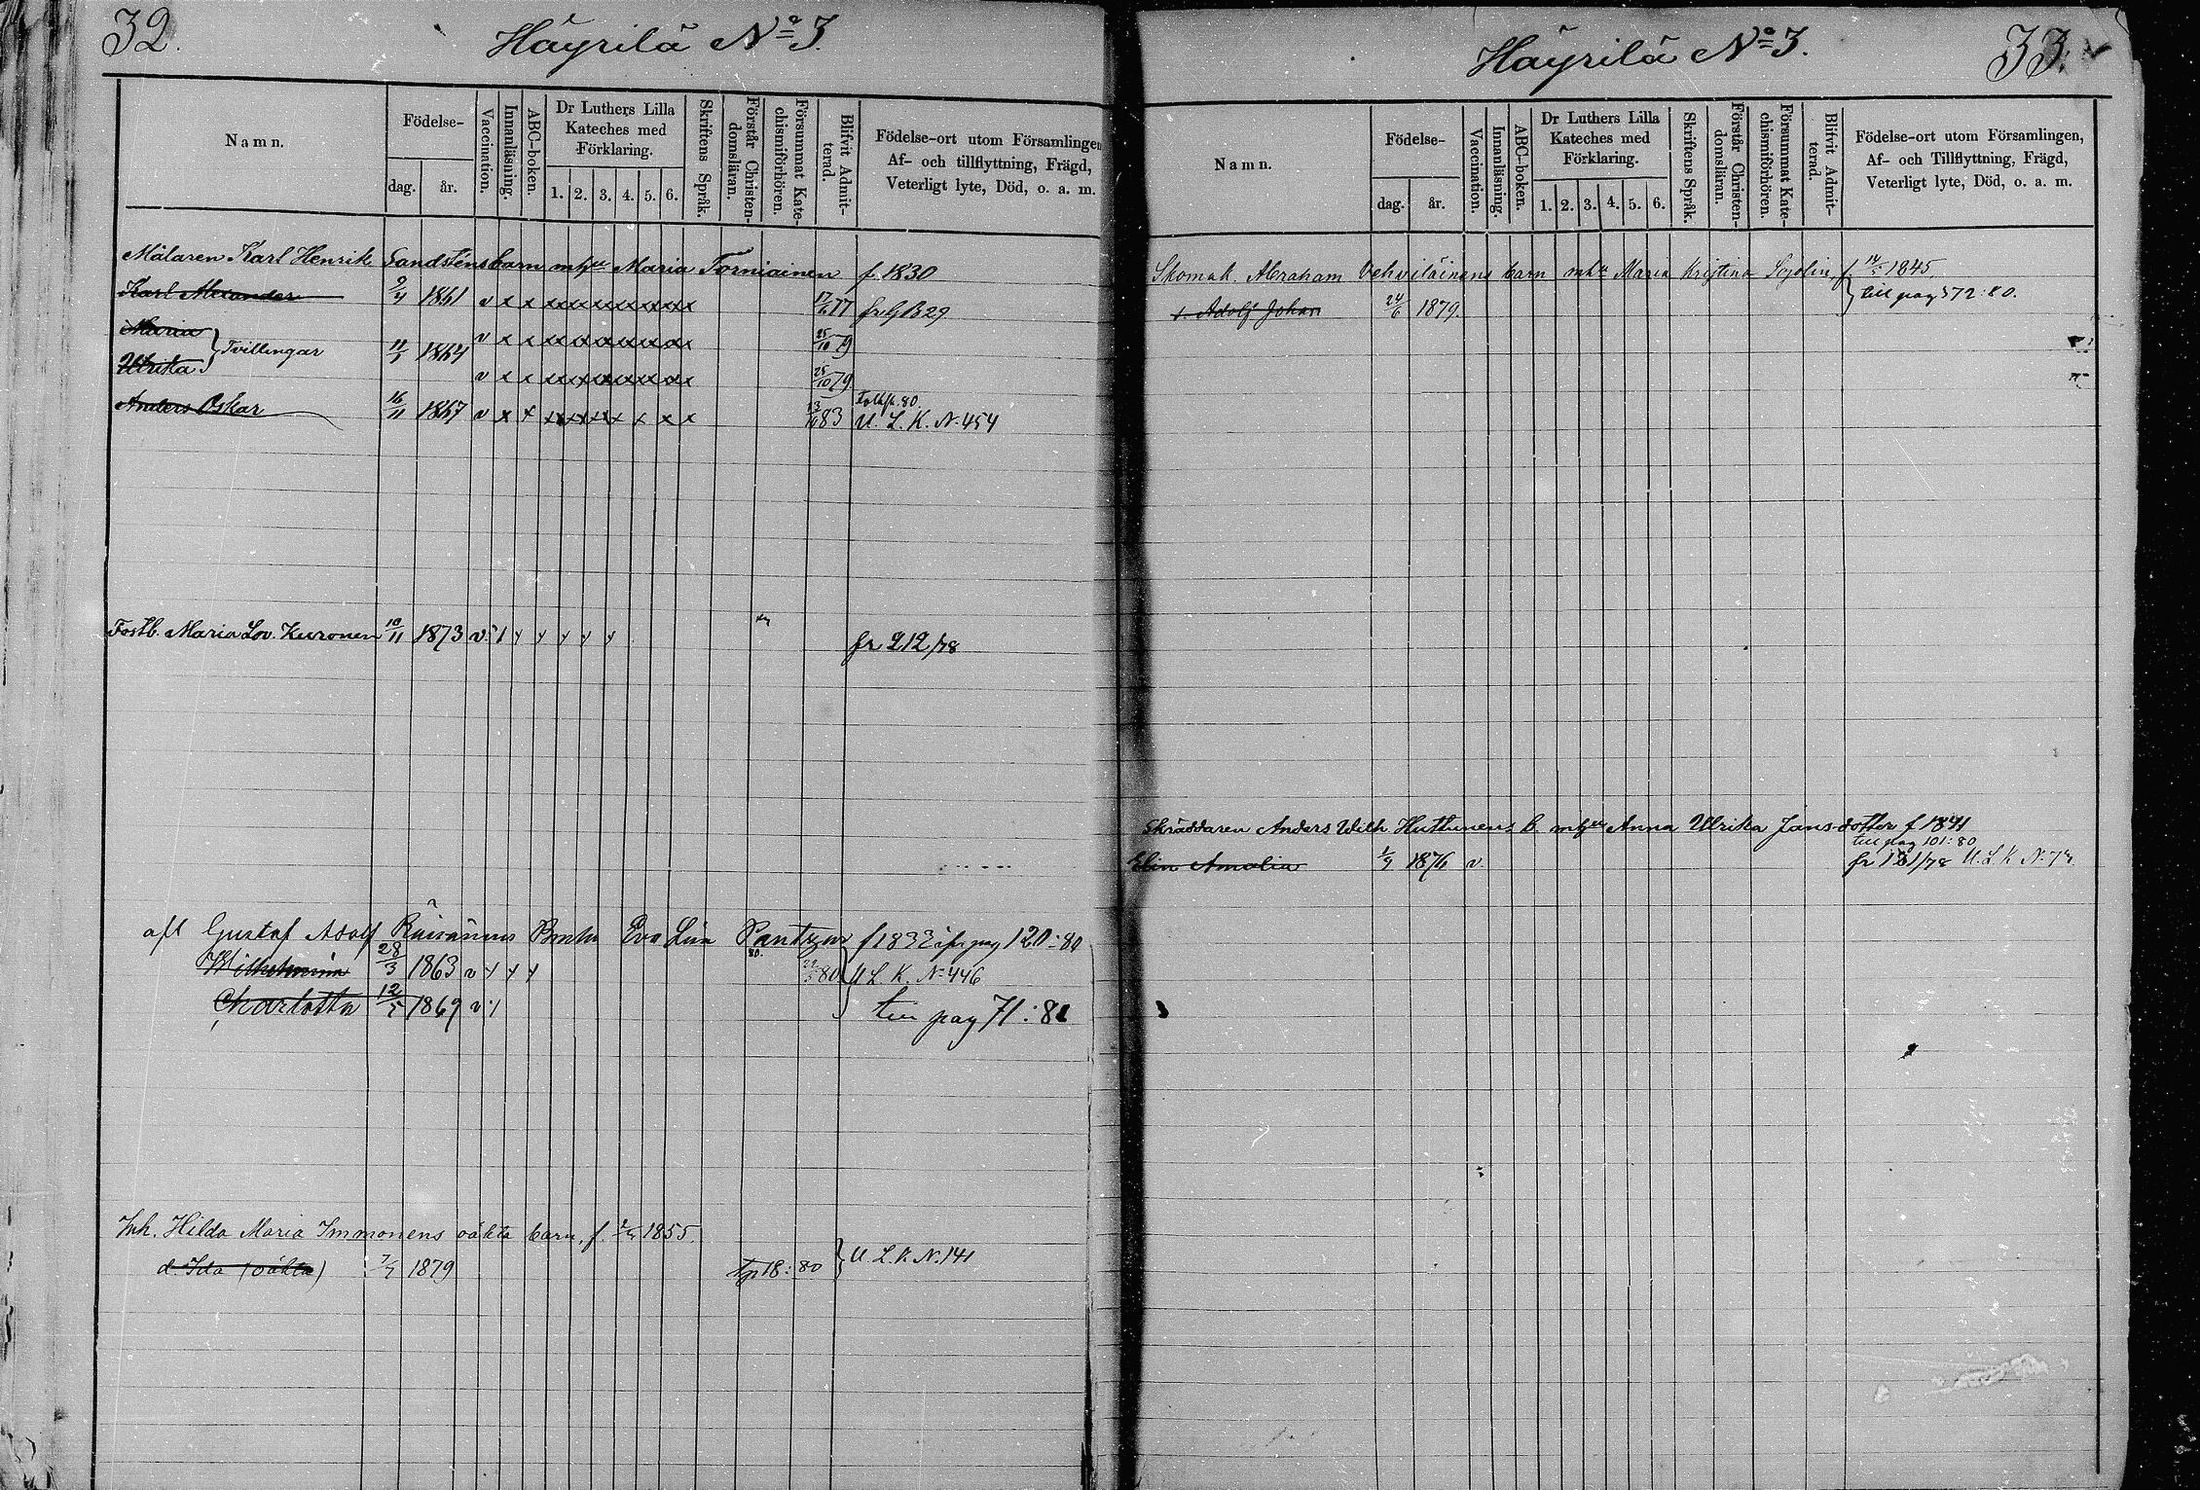 32.
Häyrilä No 3.
Namn.
Födelse-
dag.
år.
Vaccination.
Innanläsning.
ABC-boken.
Dr Luthers Lilla
Kateches med
Förklaring.
1. 2. 3. 4. 5. 6.
Skriftens Språk.
Förstår Christen-
domsläran.
Försummat Kate-
chismiförhören.
Blifvit Admit-
terad.
Födelse-ort utom Församlingen
Af- och tillflyttning, Frägd,
Veterligt lyte, Död, o. a. m.
Målaren Karl Henrik Sandsténs barn mhu Maria Torniainen f. 1830
Karl Alexander 1861 v x x x x x x x x x 77
Maria v x x x x x x x x x 25/10 79
Tvillingar 1864
Ulrika v x x x x x x x x x 25/10 79
Anders Oskar 16/11 1867 v x x x x x x x x x 83 U. L. K. N. 454
Fostb. Maria Lov. Kuronen 10/11 1873 v fr 212/78
Gustaf Adolf Eva Lisa f 1833 pag 120:80
Wilhelmina 28/3 1863 v 80 U. L. K. N. 446
Charlotta 12/5 1869 v till pag 71:81
Inh. Hilda Maria Immonens oäkta barn, f. 1855.
d. Ida (oäkta) 1879 18:80 U. L. K. N. 141
Häyrilä No 3.
33.
Namn.
Födelse-
dag.
år.
Vaccination.
Innanläsning.
ABC-boken.
Dr Luthers Lilla
Kateches med
Förklaring.
1. 2. 3. 4. 5. 6.
Skriftens Språk.
Förstår Christen-
domsläran.
Försummat Kate-
chismiförhören.
Blifvit Admit-
terad.
Födelse-ort utom Församlingen,
Af- och Tillflyttning, Frägd,
Veterligt lyte, Död, o. a. m.
Skomak. Abraham Vehviläinens barn mhu Maria Kristina f. 1845.
s. Adolf Johan 24/6 1879. till pag 572:80.
Skräddaren Anders Wilh. Huttunens b. mhu Anna Ulrika Jansdotter f 1841
till pag 101:80
Elin Amalia 1876 v.